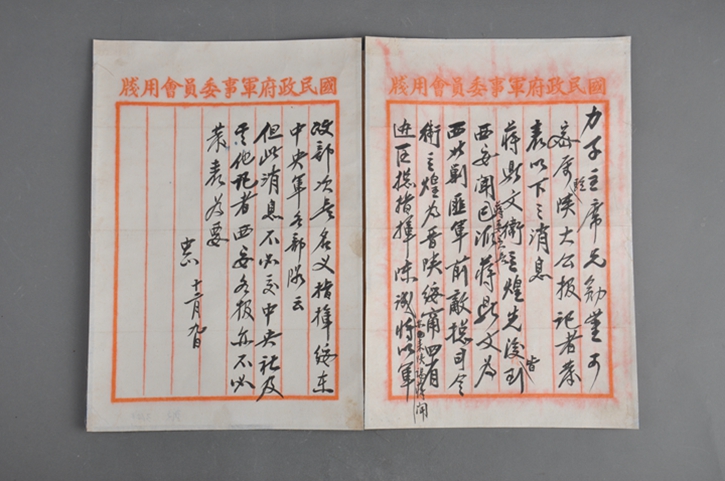 國民政府軍事委員會用牋
力子主席兄勛鑒可
密屬駐陝大公報記者發
表以下之消息
蔣鼎文衛立煌先後皆到
西安聞已派蔣鼎文為
西北剿匪軍前敵總司令
衛立煌為晉陝綏甯四省
邊區總指揮陳誠將以軍
國民政府軍事委員會用牋
政部次長名義指揮綏東
中央軍各部隊云
但此消息不必交中央社及
其他記者西安各報亦不必
發表為要
中正 十二月九日